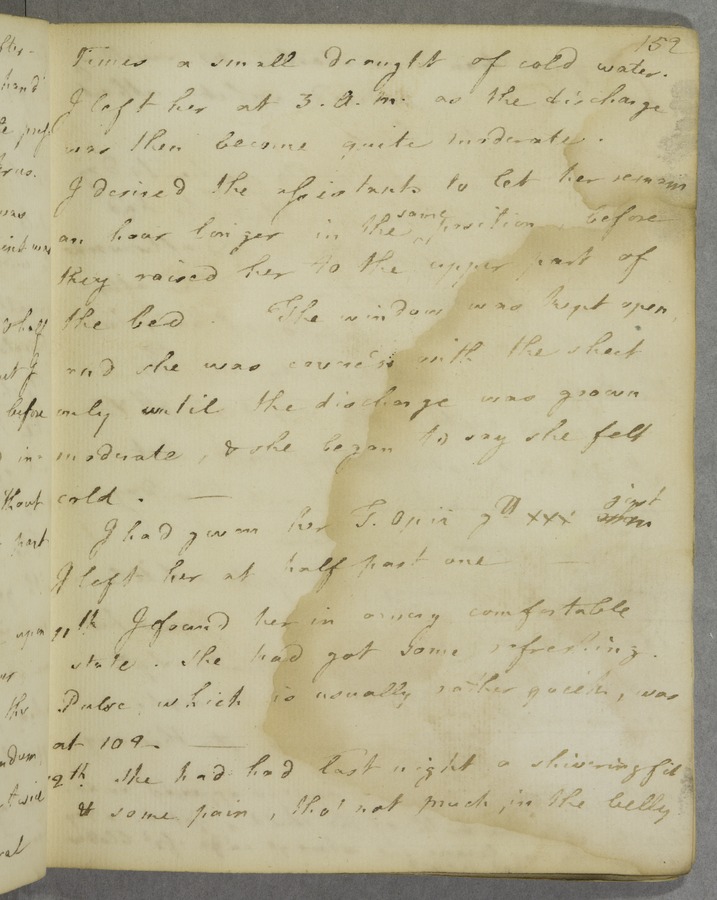 152
Times a small draught of cold water.
I left her at 3. a.m. as the discharge
was then become quite moderate.
I desired the assistants to let her remain
an hour longer in the same position, before
they raised her to the upper part of
the bed. The window was kept open,
and she was covered with the sheet
only until the discharge was grown
moderate, & she began to say she felt
cold. —
I had given her T. Opii gtt xxx just
I left her at half past one —
11th I found her in a very comfortable
state. She had got some refreshing.
Pulse, which is usually rather quick, was
at 109 —
12th She had had last night a shivering fit
& some pain, tho' not much, in the belly